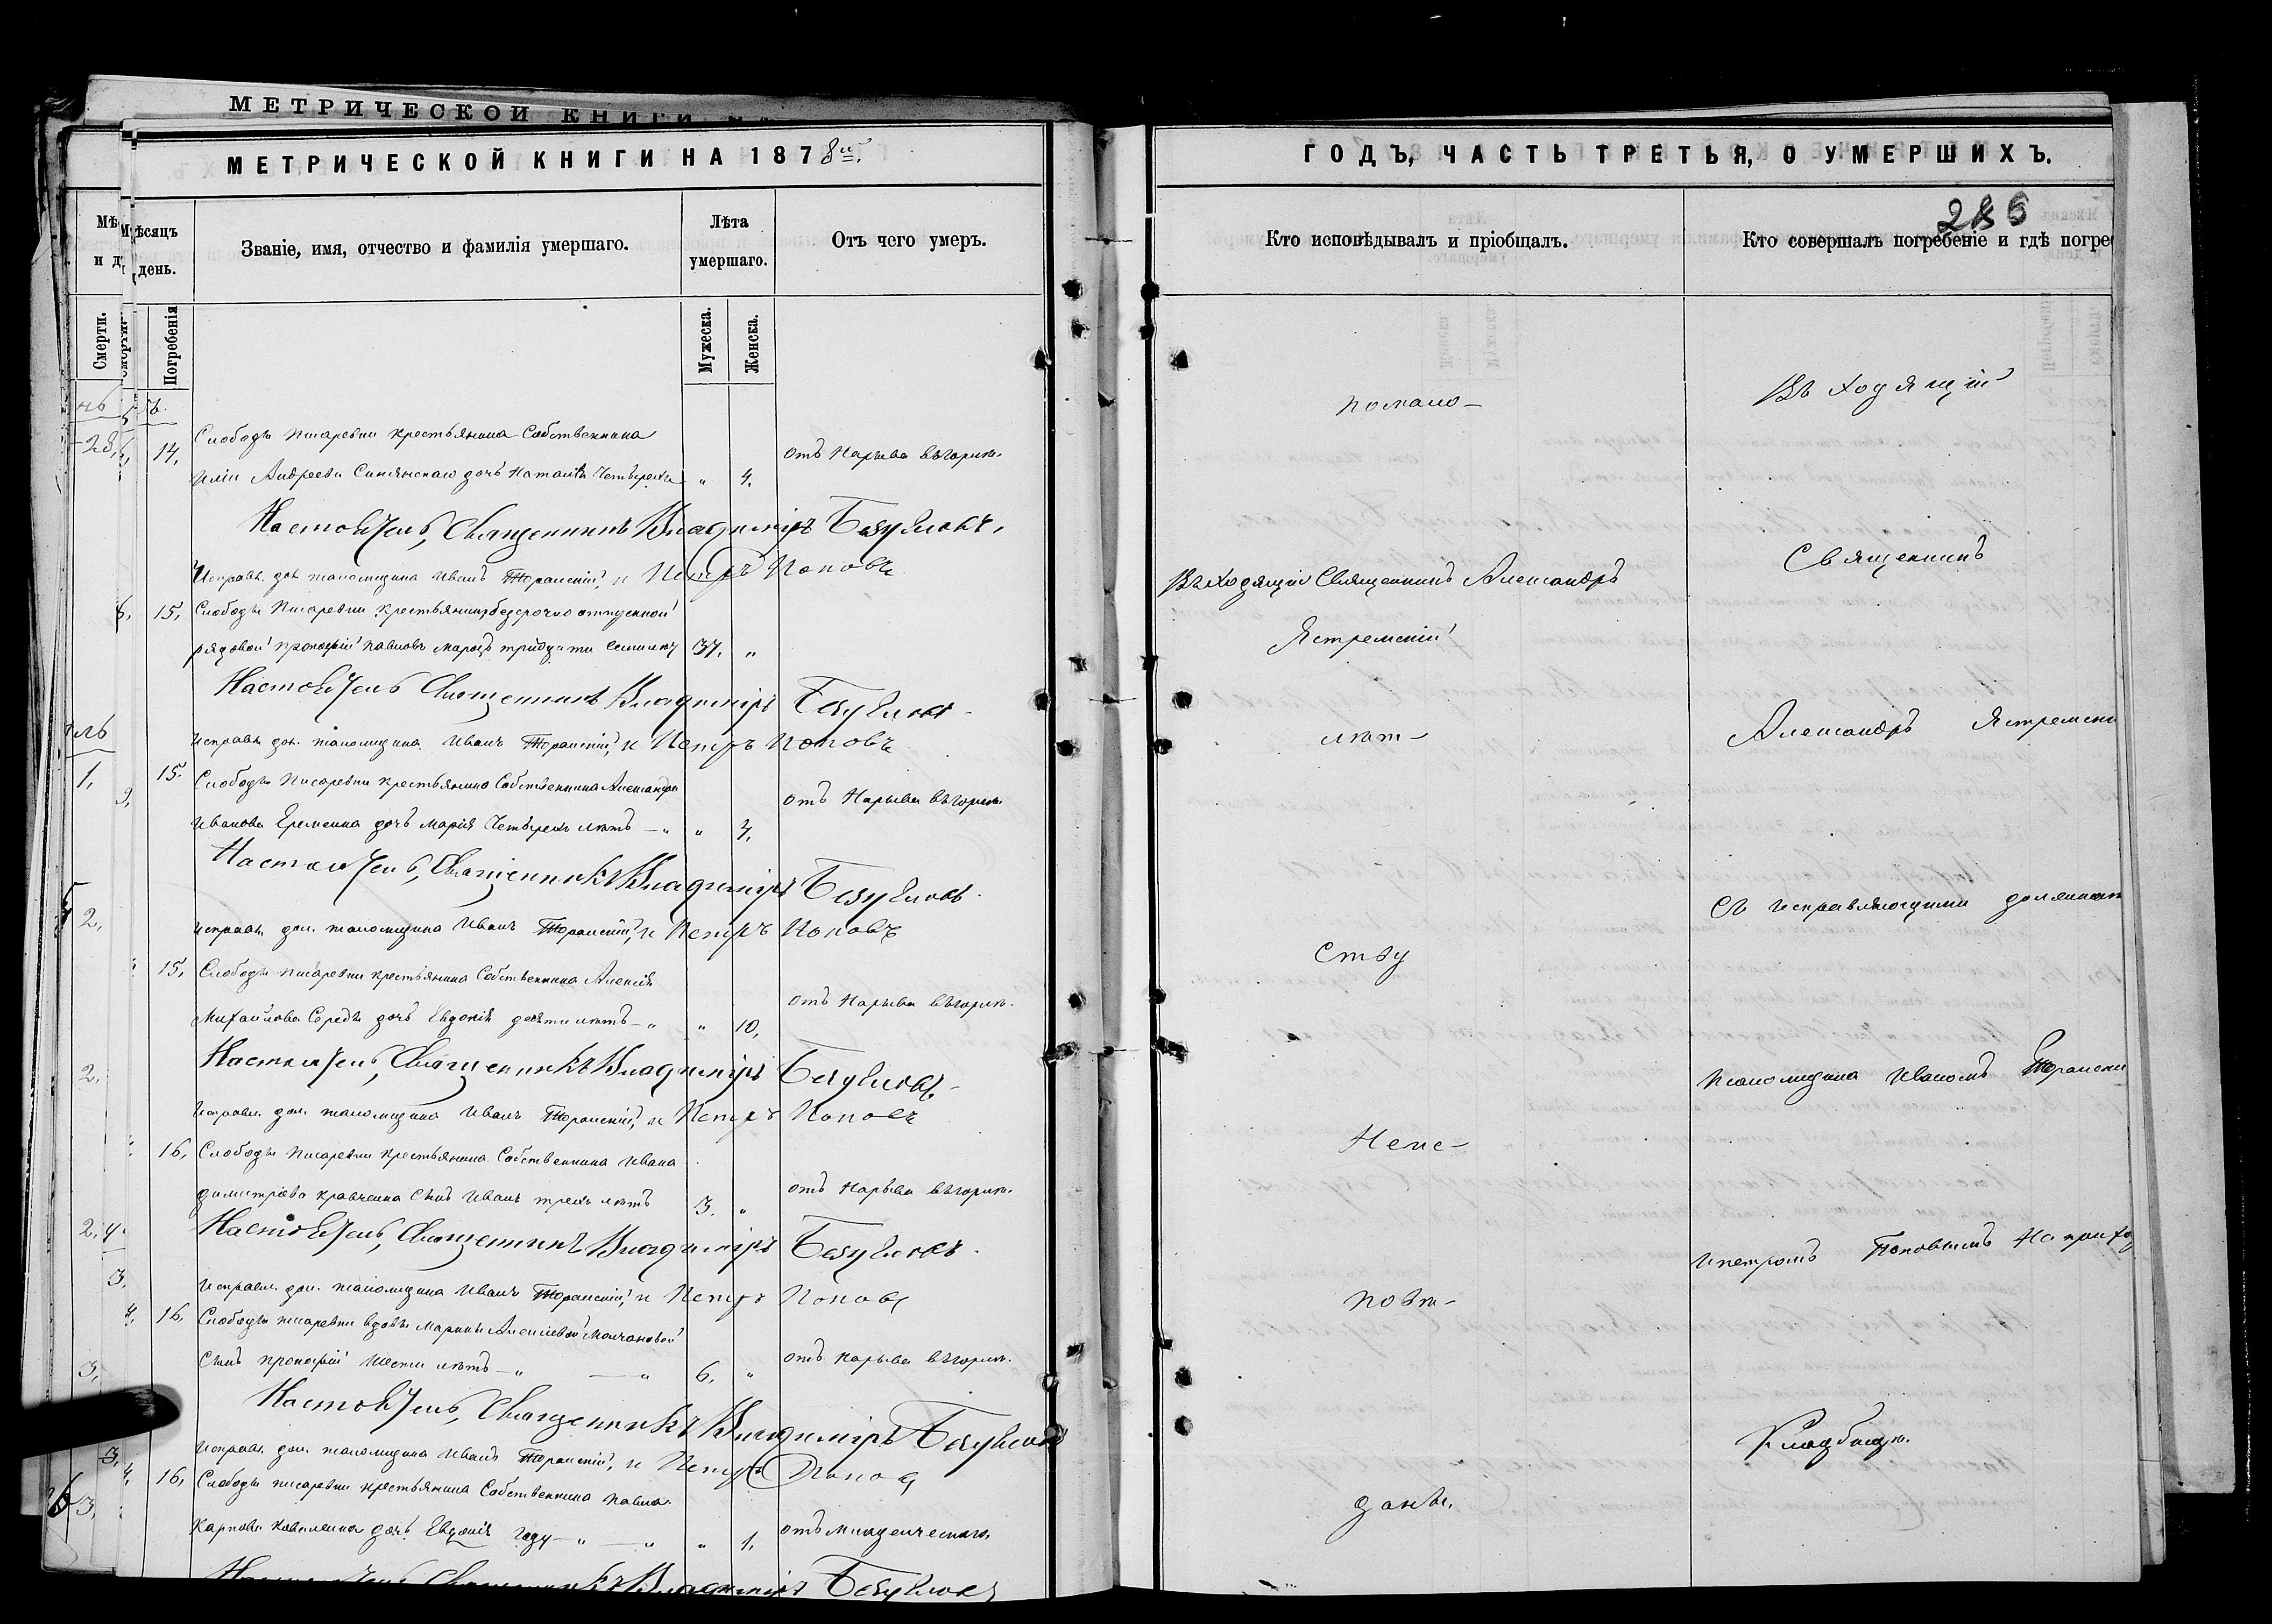 МЕТРИЧЕСКОЙ КНИГИ
МЕТРИЧЕСКОЙ КНИГИ НА 1878й.
Мѣсяцъ
и день.
Званіе, имя, отчество и фамилія умершаго.
Лѣта
умершаго.
Отъ чего умеръ.
Смерти.
Погребенія
Мужеска.
Женска.
28,
14.
Слободы Писаревки крестьянина Собственника
Иліи Андреева Синянскаго дочь Наталія Четырехъ „ 4.
отъ Нарыва въ горлѣ.
Настоятель, Священникъ Владиміръ Базулевъ,
Исправ. дол. псаломщика Иванъ Торанскій, и Петръ Поповъ
15,
Слободы Писаревки крестьянинъ безсрочно отпускной
рядовой Прокофій Павловъ Марогъ тридцати семи лѣтъ 37. „
Настоятель Священникъ Владиміръ
Исправ. дол. псаломщика Иванъ Торанскій, и Петръ Поповъ
1,
15.
Слободы Писаревки крестьянина Собственника Александра
Иванова Еременка дочь Марія Четырехъ лѣтъ — „ „ 4.
отъ Нарыва въ горлѣ.
Настоятель, Священникъ Владиміръ
2,
Исправ. дол. псаломщика Иванъ Торанскій, и Петръ Поповъ
15,
Слободы Писаревки крестьянина Собственника Алексія
Михайлова Середы дочь Евдокія десяти лѣтъ — „ „ 10,
отъ Нарыва въ горлѣ.
Настоятель, Священникъ Владиміръ
2,
Исправ. дол. псаломщика Иванъ Торанскій, и Петръ Поповъ
16,
Слободы Писаревки крестьянина Собственника Ивана
Димитріева Кравченка Сынъ Иванъ трехъ лѣтъ 3. „
отъ Нарыва въ горлѣ.
2,
Настоятель, Священникъ Владиміръ
3,
Исправл. дол. псаломщика Иванъ Торанскій, и Петръ Поповъ
4,
16,
Слободы Писаревки вдовы Марины Алексіевой Молчановой
Сынъ Прокофій Шести лѣтъ — „ — „ 6, „
отъ нарыва въ горлѣ.
3,
Настоятель, Священникъ Владиміръ
3,
Исправ. дол. псаломщика Иванъ Торанскій, и Петръ Поповъ
4,
16,
Слободы Писаревки крестьянина Собственника Павла
Карпова Коваленка дочь Евдокія году — „ — „ „ 1,
отъ младенческаго.
3,
Священникъ Владиміръ
ГОДЪ, ЧАСТЬ ТРЕТЬЯ, О УМЕРШИХЪ.
Кто исповѣдывалъ и пріобщалъ.
Кто совершалъ погребеніе и гдѣ погре
помало-
Въ ходящій
Въ ходящій Священникъ Александръ
Священникъ
Ястремскій
лѣт-
Александръ Ястремскі
Съ исправляющими должност
ству
псаломщика Иваномъ Торански
Неис-
И петромъ Поповымъ На приход
повѣ-
Кладбищѣ.
даны.